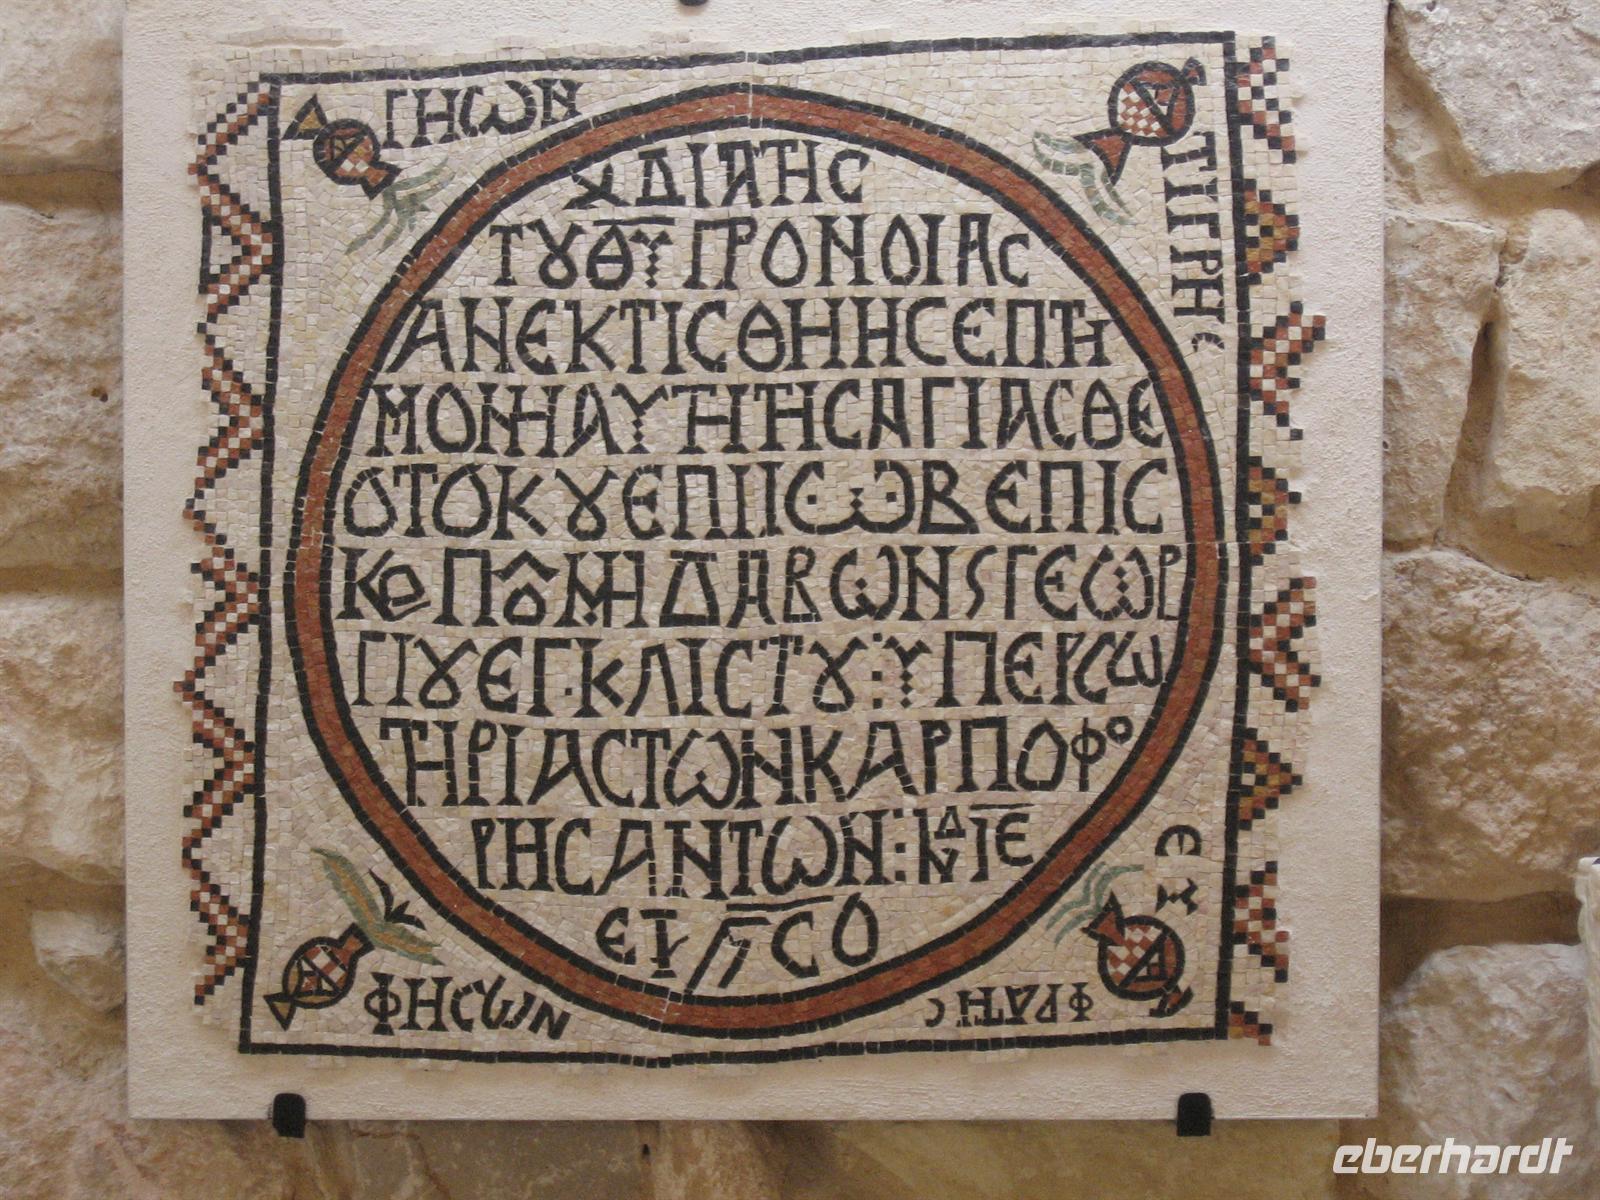 ΓΗΩΝ
ΤΙΓΡΗϹ
ΧΔΙΑΤΗϹ
ΤȢΘΥΠΡΟΝΟΙΑϹ
ΑΝΕΚΤΙϹΘΗΗϹΕΠΤΗ
ΜΟΝΗΑΥΤΗΤΗϹΑΓΙΑϹΘΕ
ΟΤΟΚȢΕΠΙΙϹ·Ω·ΒΕΠΙϹ
ΚΟΠΟΜΗΔΑΒΩΝSΓΕΩΡ
ΓΙȢΕΓ·ΚΛΙϹΤȢ:ΥΠΕΡϹΩ
ΤΗΡΙΑϹΤΩΝΚΑΡΠΟΦΟ
ΡΗϹΑΝΤΩΝ:ΙΝΔΙΕ
ΕΤ ϹΟ
ΦΗϹΩΝ
ΕΥ
ΦΡΑΤΗϹ
eberhardt